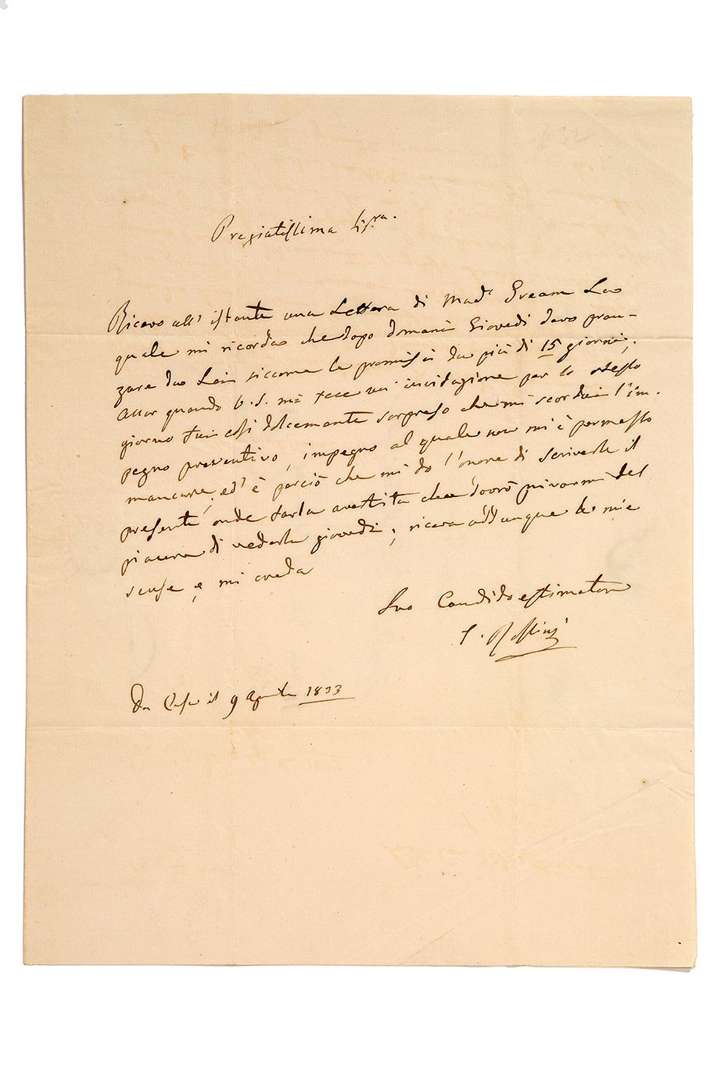 Pregiatissima Sig.ra
Ricevo all' istante una Lettera di Mad.e Gream La
quale mi ricorda che dopo dmani Giovedi devo pran-
zare da Lei siccome le promisi da più di 15 giorni;
allor quando V. S. mi fece un' invitazione per lo stesso
giorno fui così dolcemente sorpreso che mi scordai l'im-
pegno preventivo, impegno al quale non mi è permesso
mancare, ed' è perciò che mi do l'onore di scriverle il
presente onde farla avertita che dovrò privarmi del
piacere di vederla giovedi; riceva addunque le mie
scuse e mi creda
Suo Candido estimatore
G. Rossini
Da Casa il 9 aprile 1833